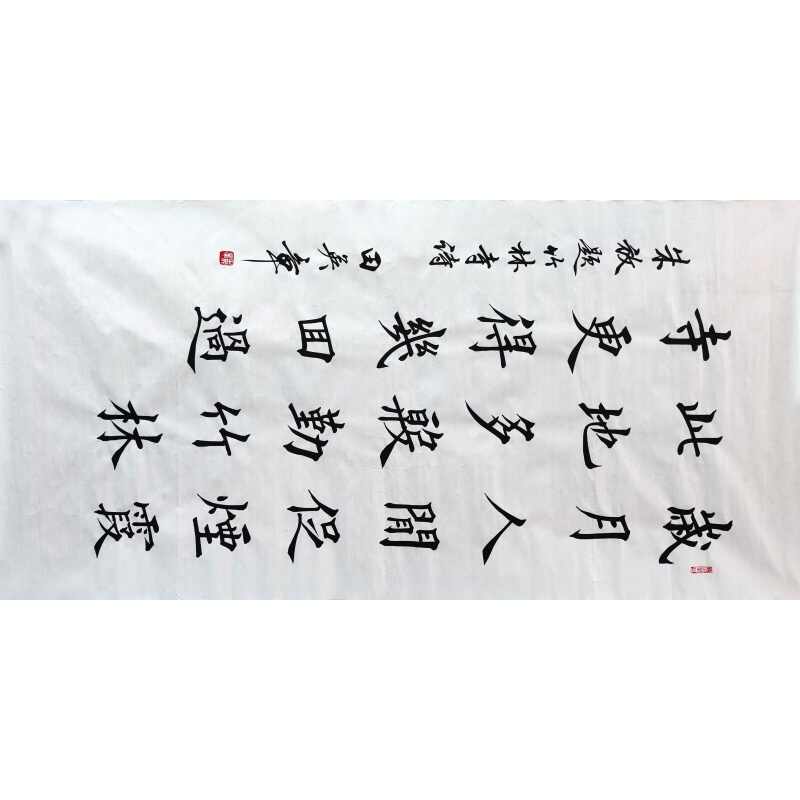 歲月人間促煙霞
此地多殷勤竹林
寺更得幾回過
朱放題竹林寺詩 田英章